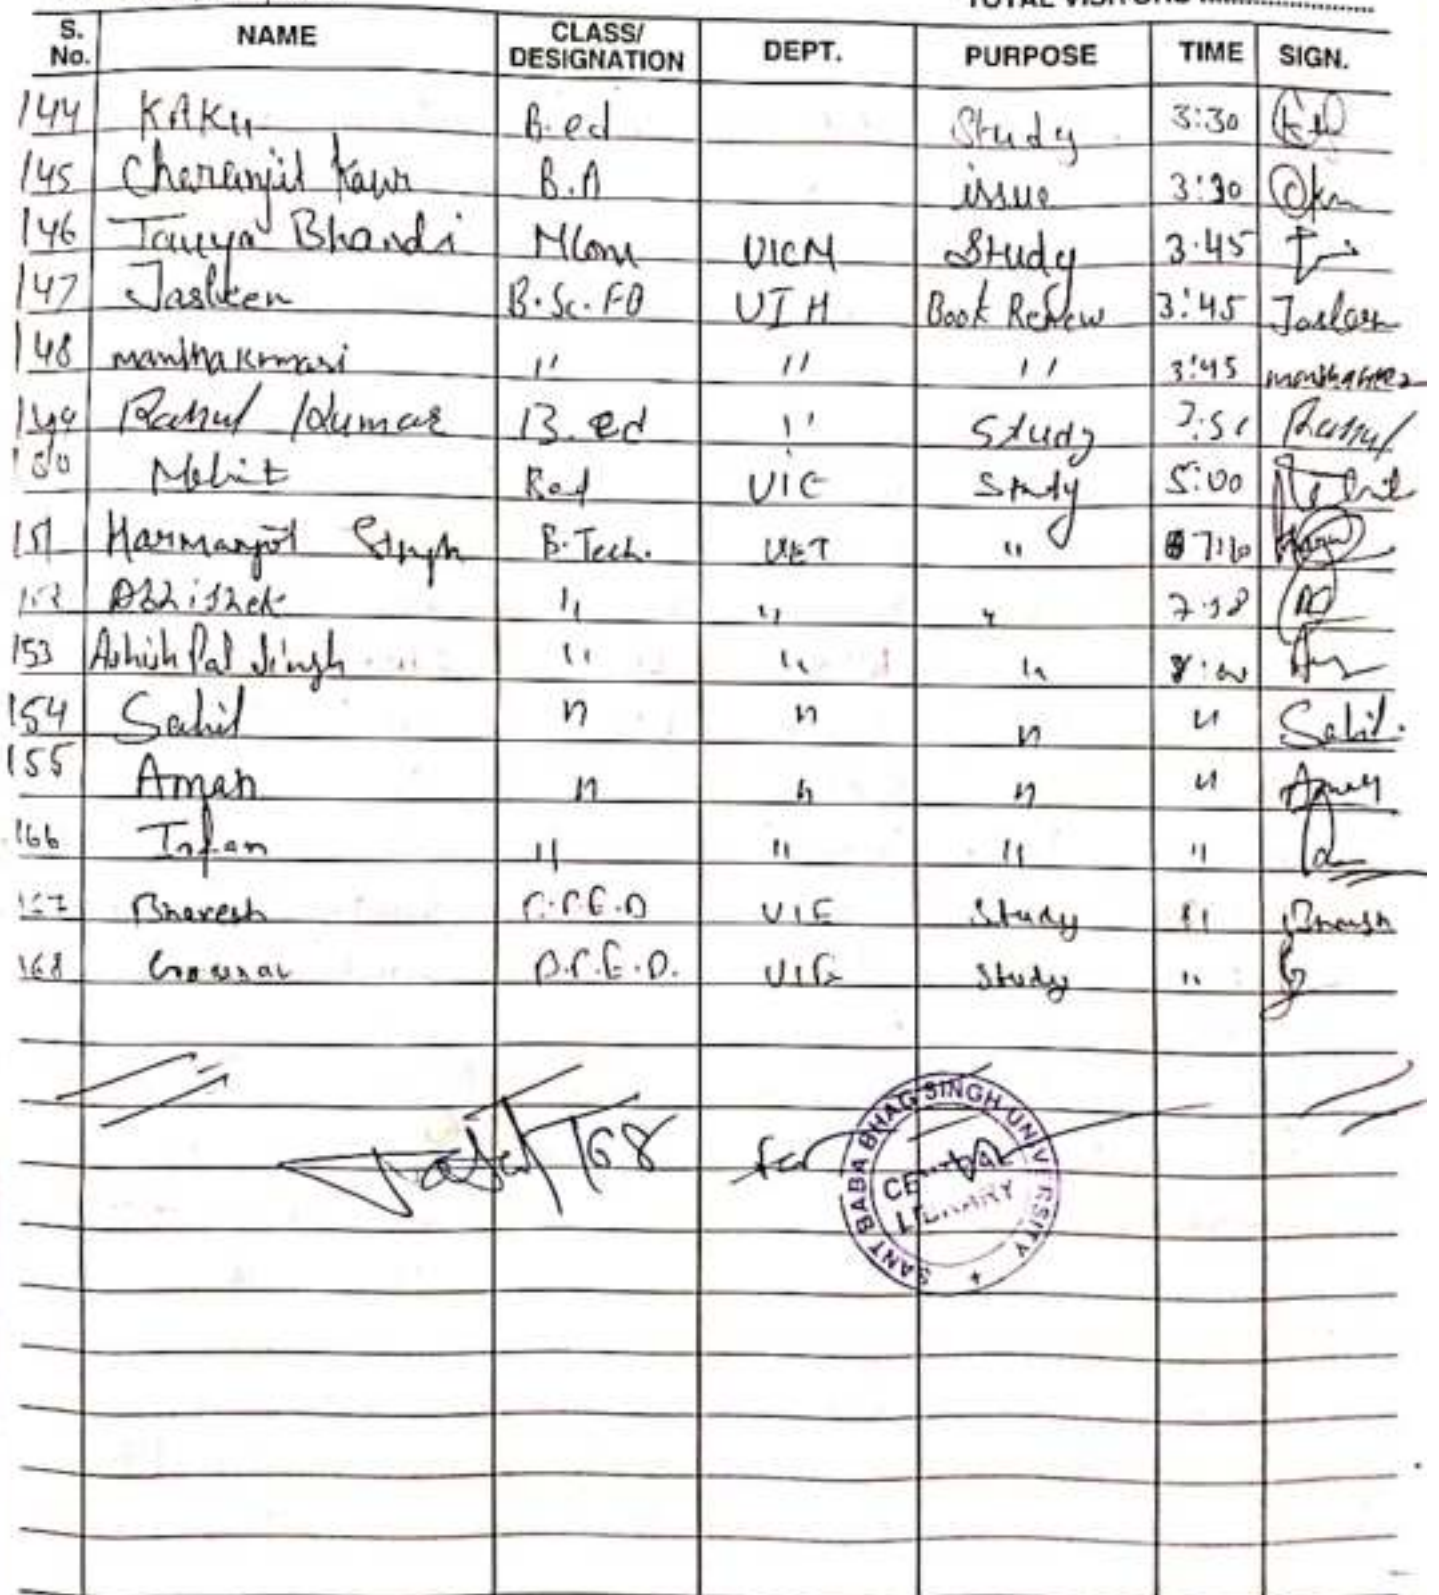 TOTAL VISITORS
S. No. NAME CLASS/ DESIGNATION DEPT. PURPOSE TIME SIGN.
144 KAKU B.ed Study 3:30
145 Charanjit Kaur B.A issue 3:30
146 Tanya Bhandi MCom UICM Study 3.45
147 Jasleen B.Sc. FD UIH Book Renew 3:45 Jasleen
148 manisha kumari '' '' '' 3:45
149 Rahul Kumar B.ed '' Study Rahul
Mohit Bed UIE Study 5:00 Mohit
151 Harmanjot Singh B.Tech. UET "
Abhishek " " "
153 Ashish Pal Singh " " "
154 Sahil " " " " Sahil.
155 Aman " " " " Aman
166 Irfan " " " "
167 Bhavesh UIE Study " Bhavesh
168 UIE Study "
168 for
SANT BABA BHAG SINGH UNIVERSITY
CENTRAL LIBRARY